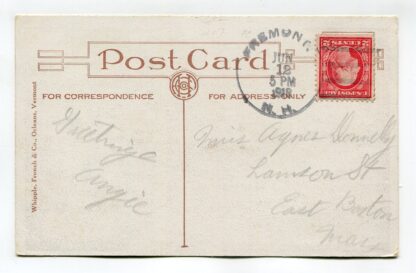 Post Card
FOR CORRESPONDENCE
FOR ADDRESS ONLY
FREMONT
JUN
12
5 PM
N.H.
2 CENTS 2
U.S. POSTAGE
Whipple, French & Co., Orleans, Vermont
Greetings
Angie
Miss Agnes Donnelly
Lamson St
East Boston
Mass